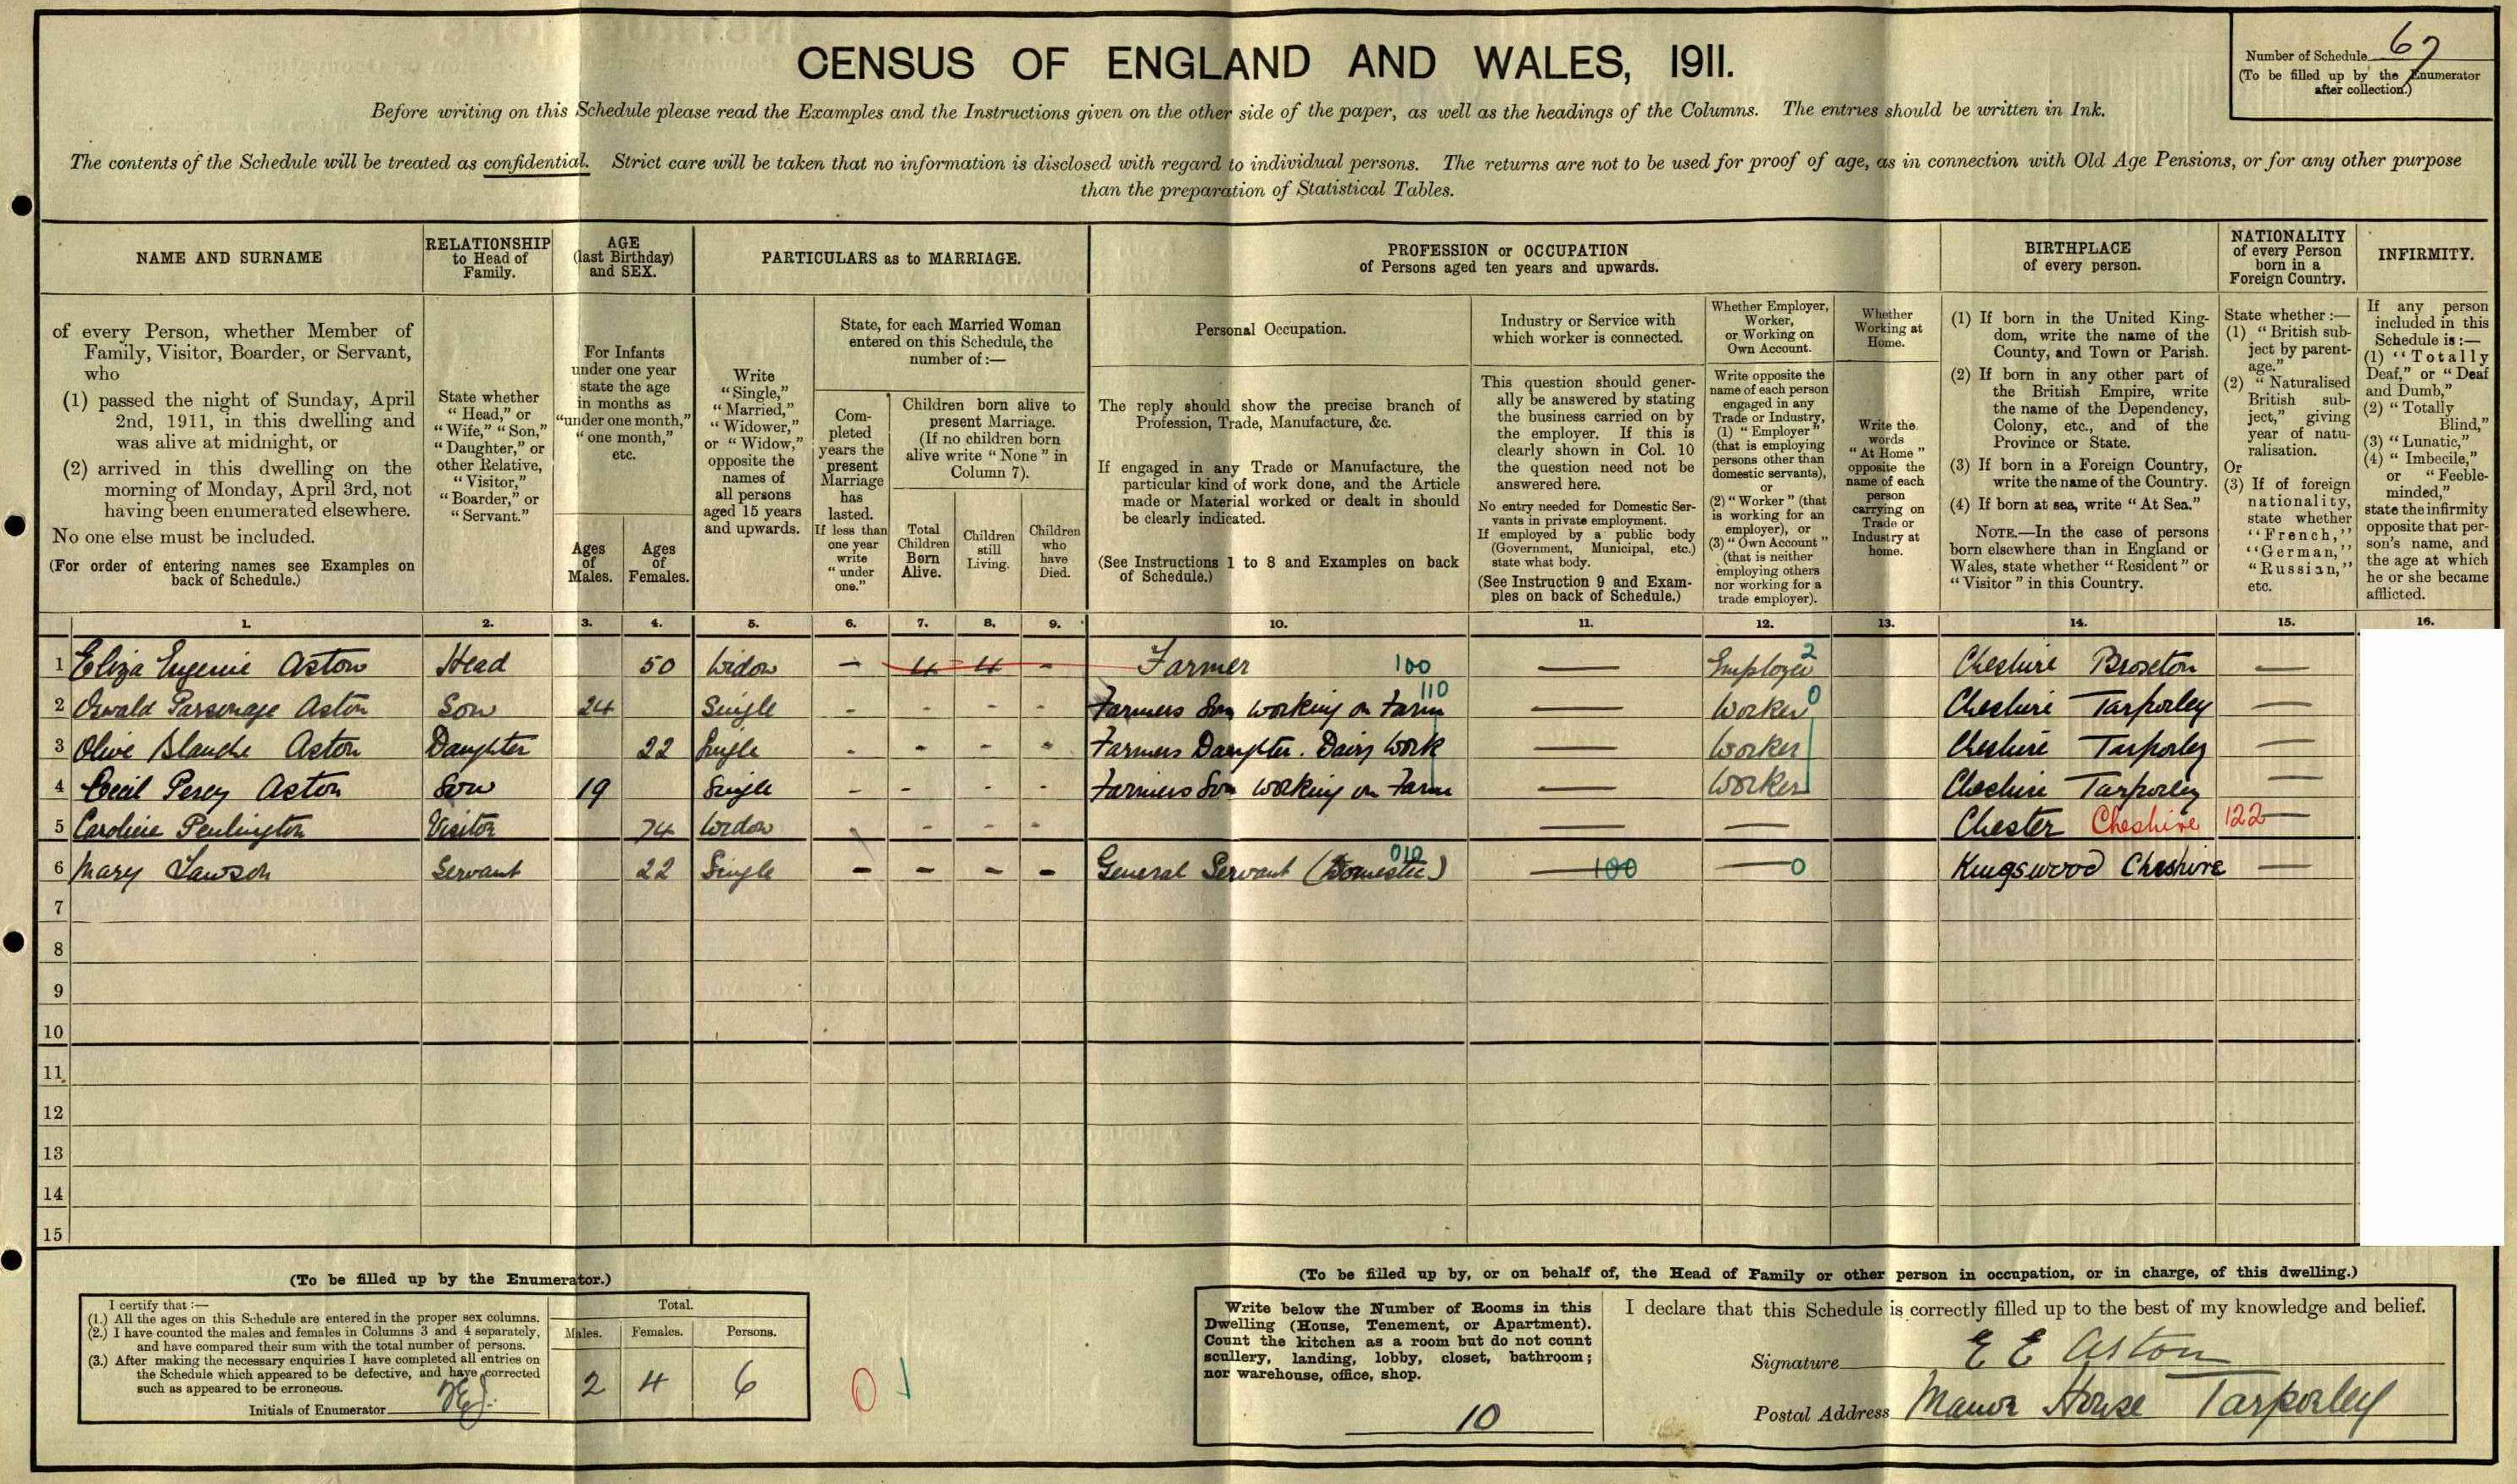 CENSUS OF ENGLAND AND WALES, 1911.
Number of Schedule 67
(To be filled up by the Enumerator
after collection.)
Before writing on this Schedule please read the Examples and the Instructions given on the other side of the paper, as well as the headings of the Columns. The entries should be written in Ink.
The contents of the Schedule will be treated as confidential. Strict care will be taken that no information is disclosed with regard to individual persons. The returns are not to be used for proof of age, as in connection with Old Age Pensions, or for any other purpose
than the preparation of Statistical Tables.
NAME AND SURNAME
of every Person, whether Member of
Family, Visitor, Boarder, or Servant,
who
(1) passed the night of Sunday, April
2nd, 1911, in this dwelling and
was alive at midnight, or
(2) arrived in this dwelling on the
morning of Monday, April 3rd, not
having been enumerated elsewhere.
No one else must be included.
(For order of entering names see Examples on
back of Schedule.)
RELATIONSHIP
to Head of
Family.
State whether
"Head," or
"Wife," "Son,"
"Daughter," or
other Relative,
"Visitor,"
"Boarder," or
"Servant."
AGE
(last Birthday)
and SEX.
For Infants
under one year
state the age
in months as
"under one month,"
"one month,"
etc.
Ages
of
Males.
Ages
of
Females.
PARTICULARS as to MARRIAGE.
Write
"Single,"
"Married,"
"Widower,"
or "Widow,"
opposite the
names of
all persons
aged 15 years
and upwards.
State, for each Married Woman
entered on this Schedule, the
number of:—
Com-
pleted
years the
present
Marriage
has
lasted.
If less than
one year
write
"under
one."
Children born alive to
present Marriage.
(If no children born
alive write "None" in
Column 7).
Total
Children
Born
Alive.
Children
still
Living.
Children
who
have
Died.
PROFESSION or OCCUPATION
of Persons aged ten years and upwards.
Personal Occupation.
The reply should show the precise branch of
Profession, Trade, Manufacture, &c.
If engaged in any Trade or Manufacture, the
particular kind of work done, and the Article
made or Material worked or dealt in should
be clearly indicated.
(See Instructions 1 to 8 and Examples on back
of Schedule.)
Industry or Service with
which worker is connected.
This question should gener-
ally be answered by stating
the business carried on by
the employer. If this is
clearly shown in Col. 10
the question need not be
answered here.
No entry needed for Domestic Ser-
vants in private employment.
If employed by a public body
(Government, Municipal, etc.)
state what body.
(See Instruction 9 and Exam-
ples on back of Schedule.)
Whether Employer,
Worker,
or Working on
Own Account.
Write opposite the
name of each person
engaged in any
Trade or Industry,
(1) "Employer"
(that is employing
persons other than
domestic servants),
or
(2) "Worker" (that
is working for an
employer), or
(3) "Own Account"
(that is neither
employing others
nor working for a
trade employer).
Whether
Working at
Home.
Write the
words
"At Home"
opposite the
name of each
person
carrying on
Trade or
Industry at
home.
BIRTHPLACE
of every person.
(1) If born in the United King-
dom, write the name of the
County, and Town or Parish.
(2) If born in any other part of
the British Empire, write
the name of the Dependency,
Colony, etc., and of the
Province or State.
(3) If born in a Foreign Country,
write the name of the Country.
(4) If born at sea, write "At Sea."
NOTE.—In the case of persons
born elsewhere than in England or
Wales, state whether "Resident" or
"Visitor" in this Country.
NATIONALITY
of every Person
born in a
Foreign Country.
State whether :—
(1) "British sub-
ject by parent-
age."
(2) "Naturalised
British sub-
ject," giving
year of natu-
ralisation.
Or
(3) If of foreign
nationality,
state whether
"French,"
"German,"
"Russian,"
etc.
INFIRMITY.
If any person
included in this
Schedule is:—
(1) "Totally
Deaf," or "Deaf
and Dumb,"
(2) "Totally
Blind,"
(3) "Lunatic,"
(4) "Imbecile,"
or "Feeble-
minded,"
state the infirmity
opposite that per-
son's name, and
the age at which
he or she became
afflicted.
1. 2. 3. 4. 5. 6. 7. 8. 9. 10. 11. 12. 13. 14. 15. 16.
1 Eliza Eugenie Aston Head 50 Widow – 4 4 – Farmer 100 — Employer 2 Cheshire Broxton —
2 Oswald Parsonage Aston Son 24 Single - - - - Farmers Son working on Farm 110 — Worker 0 Cheshire Tarporley —
3 Olive Blanche Aston Daughter 22 Single - - - - Farmers Daughter. Dairy Work — Worker Cheshire Tarporley —
4 Cecil Percy Aston Son 19 Single - - - - Farmers Son working on Farm — Worker Cheshire Tarporley —
5 Caroline Penlington Visitor 74 Widow - - - — — Chester Cheshire 122 —
6 Mary Lawson Servant 22 Single - - - - General Servant (Domestic) 010 — 100 — 0 Kingswood Cheshire —
7
8
9
10
11
12
13
14
15
(To be filled up by the Enumerator.)
I certify that :—
(1.) All the ages on this Schedule are entered in the proper sex columns.
(2.) I have counted the males and females in Columns 3 and 4 separately,
and have compared their sum with the total number of persons.
(3.) After making the necessary enquiries I have completed all entries on
the Schedule which appeared to be defective, and have corrected
such as appeared to be erroneous.
Initials of Enumerator
Total.
Males. Females. Persons.
2 4 6
0
(To be filled up by, or on behalf of, the Head of Family or other person in occupation, or in charge, of this dwelling.)
Write below the Number of Rooms in this
Dwelling (House, Tenement, or Apartment).
Count the kitchen as a room but do not count
scullery, landing, lobby, closet, bathroom;
nor warehouse, office, shop.
10
I declare that this Schedule is correctly filled up to the best of my knowledge and belief.
Signature E E Aston
Postal Address Manor House Tarporley